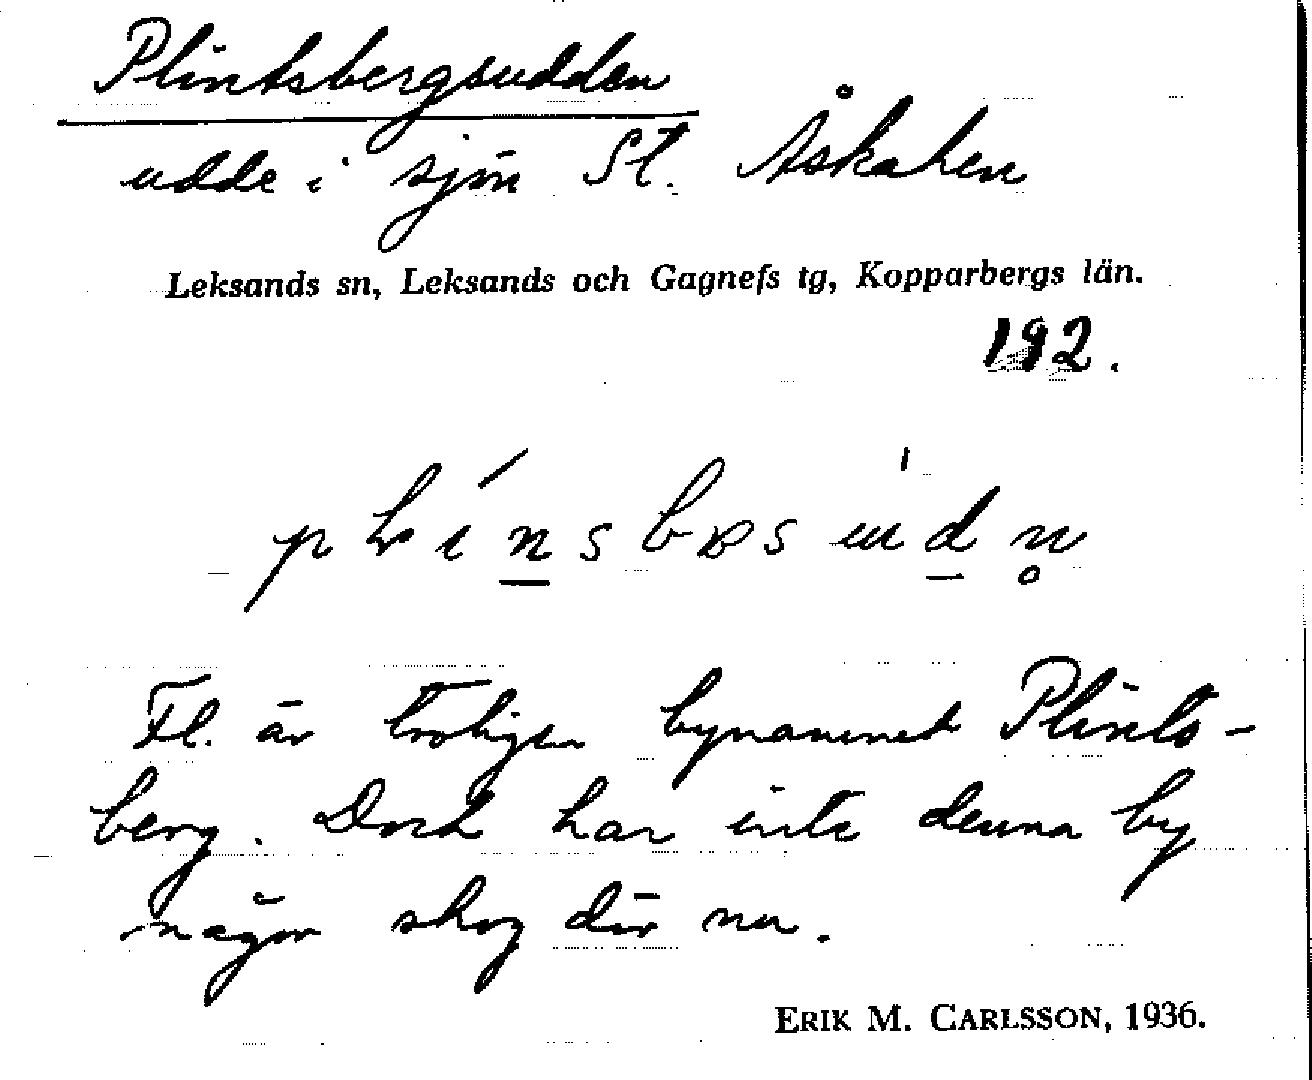 Plintsbergsudden
udde i sjön St. Åskaken
Leksands sn, Leksands och Gagnefs tg, Kopparbergs län.
192.
Fl. är troligen bynamnet Plints-
berg. Dock har inte denna by
någon skog där nu.
ERIK M. CARLSSON, 1936.